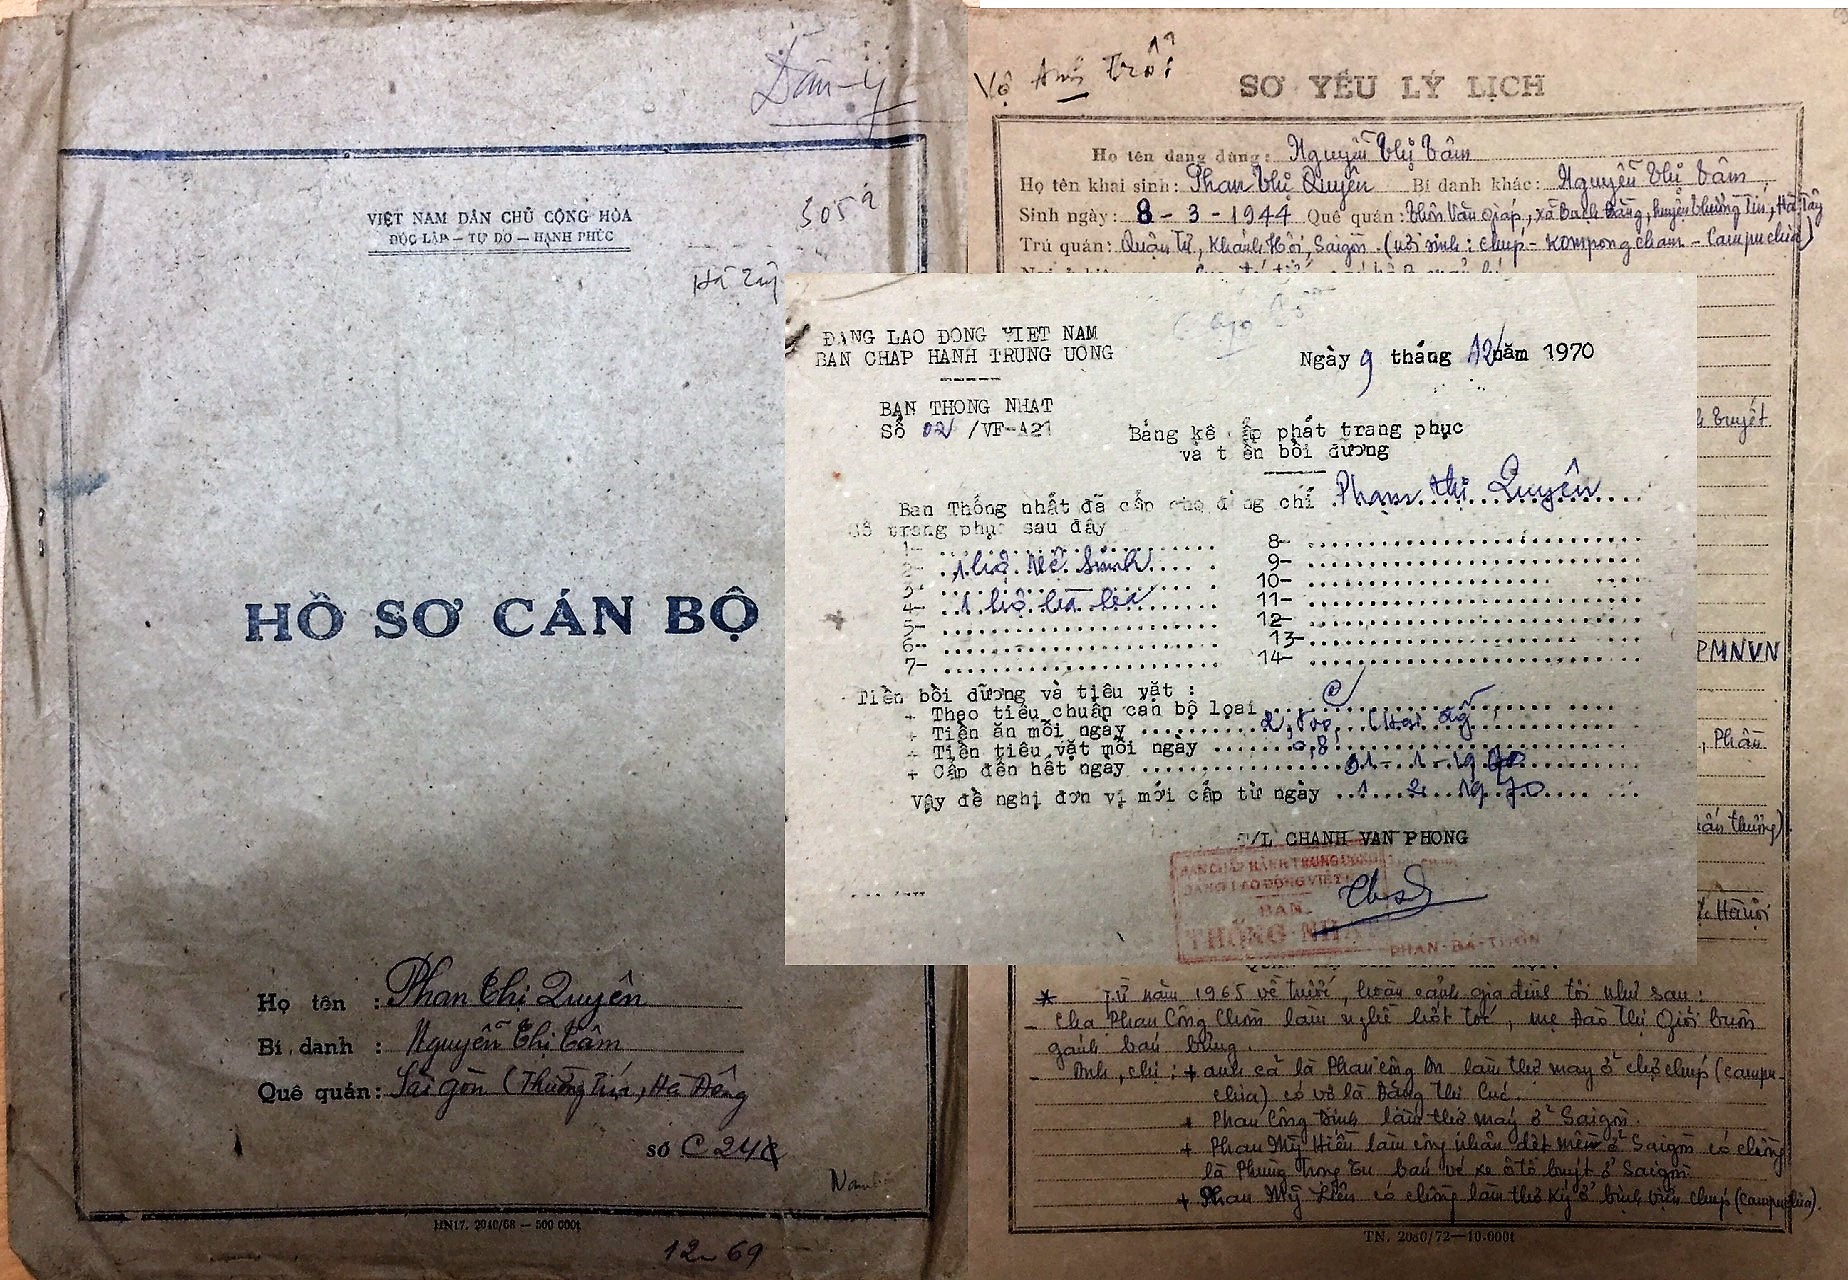 Dân-y
VIỆT NAM DÂN CHỦ CỘNG HÒA
ĐỘC LẬP — TỰ DO — HẠNH PHÚC
305
Hà Tây
HỒ SƠ CÁN BỘ
Họ tên : Phan Thị Quyên
Bí danh : Nguyễn Thị Tâm
Quê quán: Sài gòn (Thường Tín, Hà Đông
số C 24
Nam
HN17. 2040/68 — 500 000t
12-69
Vợ Anh Trỗi
SƠ YẾU LÝ LỊCH
Họ tên đang dùng: Nguyễn Thị Tâm
Họ tên khai sinh: Phan Thị Quyên Bí danh khác: Nguyễn Thị Tâm
Sinh ngày: 8 - 3 - 1944 Quê quán: thôn Văn Giáp, xã Bạch Đằng, huyện Thường Tín, Hà Tây
Trú quán: Quận Tư, Khánh Hội, Saigon (nơi sinh: Chup - Kompong cham - Campuchia)
ĐẢNG LAO DONG VIET NAM
BAN CHAP HANH TRUNG UONG
Ngày 9 tháng 12 năm 1970
BAN THONG NHAT
Số 02 /VF-A21
Bảng kê cấp phát trang phục
và tiền bồi dưỡng
Ban Thống nhất đã cấp cho đồng chí Phạm thị Quyên
Số trang phục sau đây
1-
2- 1 bộ vệ sinh
3-
4- 1 bộ bà ba
5-
6-
7-
8-
9-
10-
11-
12-
13-
14-
Tiền bồi dưỡng và tiêu vặt :
+ Theo tiêu chuẩn cán bộ loại C
+ Tiền ăn mỗi ngày
+ Tiền tiêu vặt mỗi ngày 0,8
+ Cấp đến hết ngày 31 - 1 - 1970
Vậy đề nghị đơn vị mới cấp từ ngày 1 2 1970
T/L CHANH VAN PHONG
BAN CHẤP HÀNH TRUNG ƯƠNG
ĐẢNG LAO ĐỘNG VIỆT
BAN
THỐNG NHẤT
PHAN-BÁ-
truyết
PMNVN
, Phần
Hà Nội
* Từ năm 1965 về trước, hoàn cảnh gia đình tôi như sau:
- cha Phan Công Chơn làm nghề hốt tóc, mẹ Đào Thị Giỏi buôn
gánh bán bưng.
- Anh, chị: + anh cả là Phan Công An làm thợ may ở chợ chup (campu-
chia) có vợ là Đặng Thị Cúc.
+ Phan Công Đính làm thợ máy ở Saigon.
+ Phan Mỹ Hiền làm công nhân dệt mền ở Saigon có chồng
là Phùng Trọng Tu bán vé xe ô tô buýt ở Saigon
+ Phan Mỹ Liên có chồng làm thư ký ở bệnh viện chup (campuchia).
TN. 2080/72—10.000t